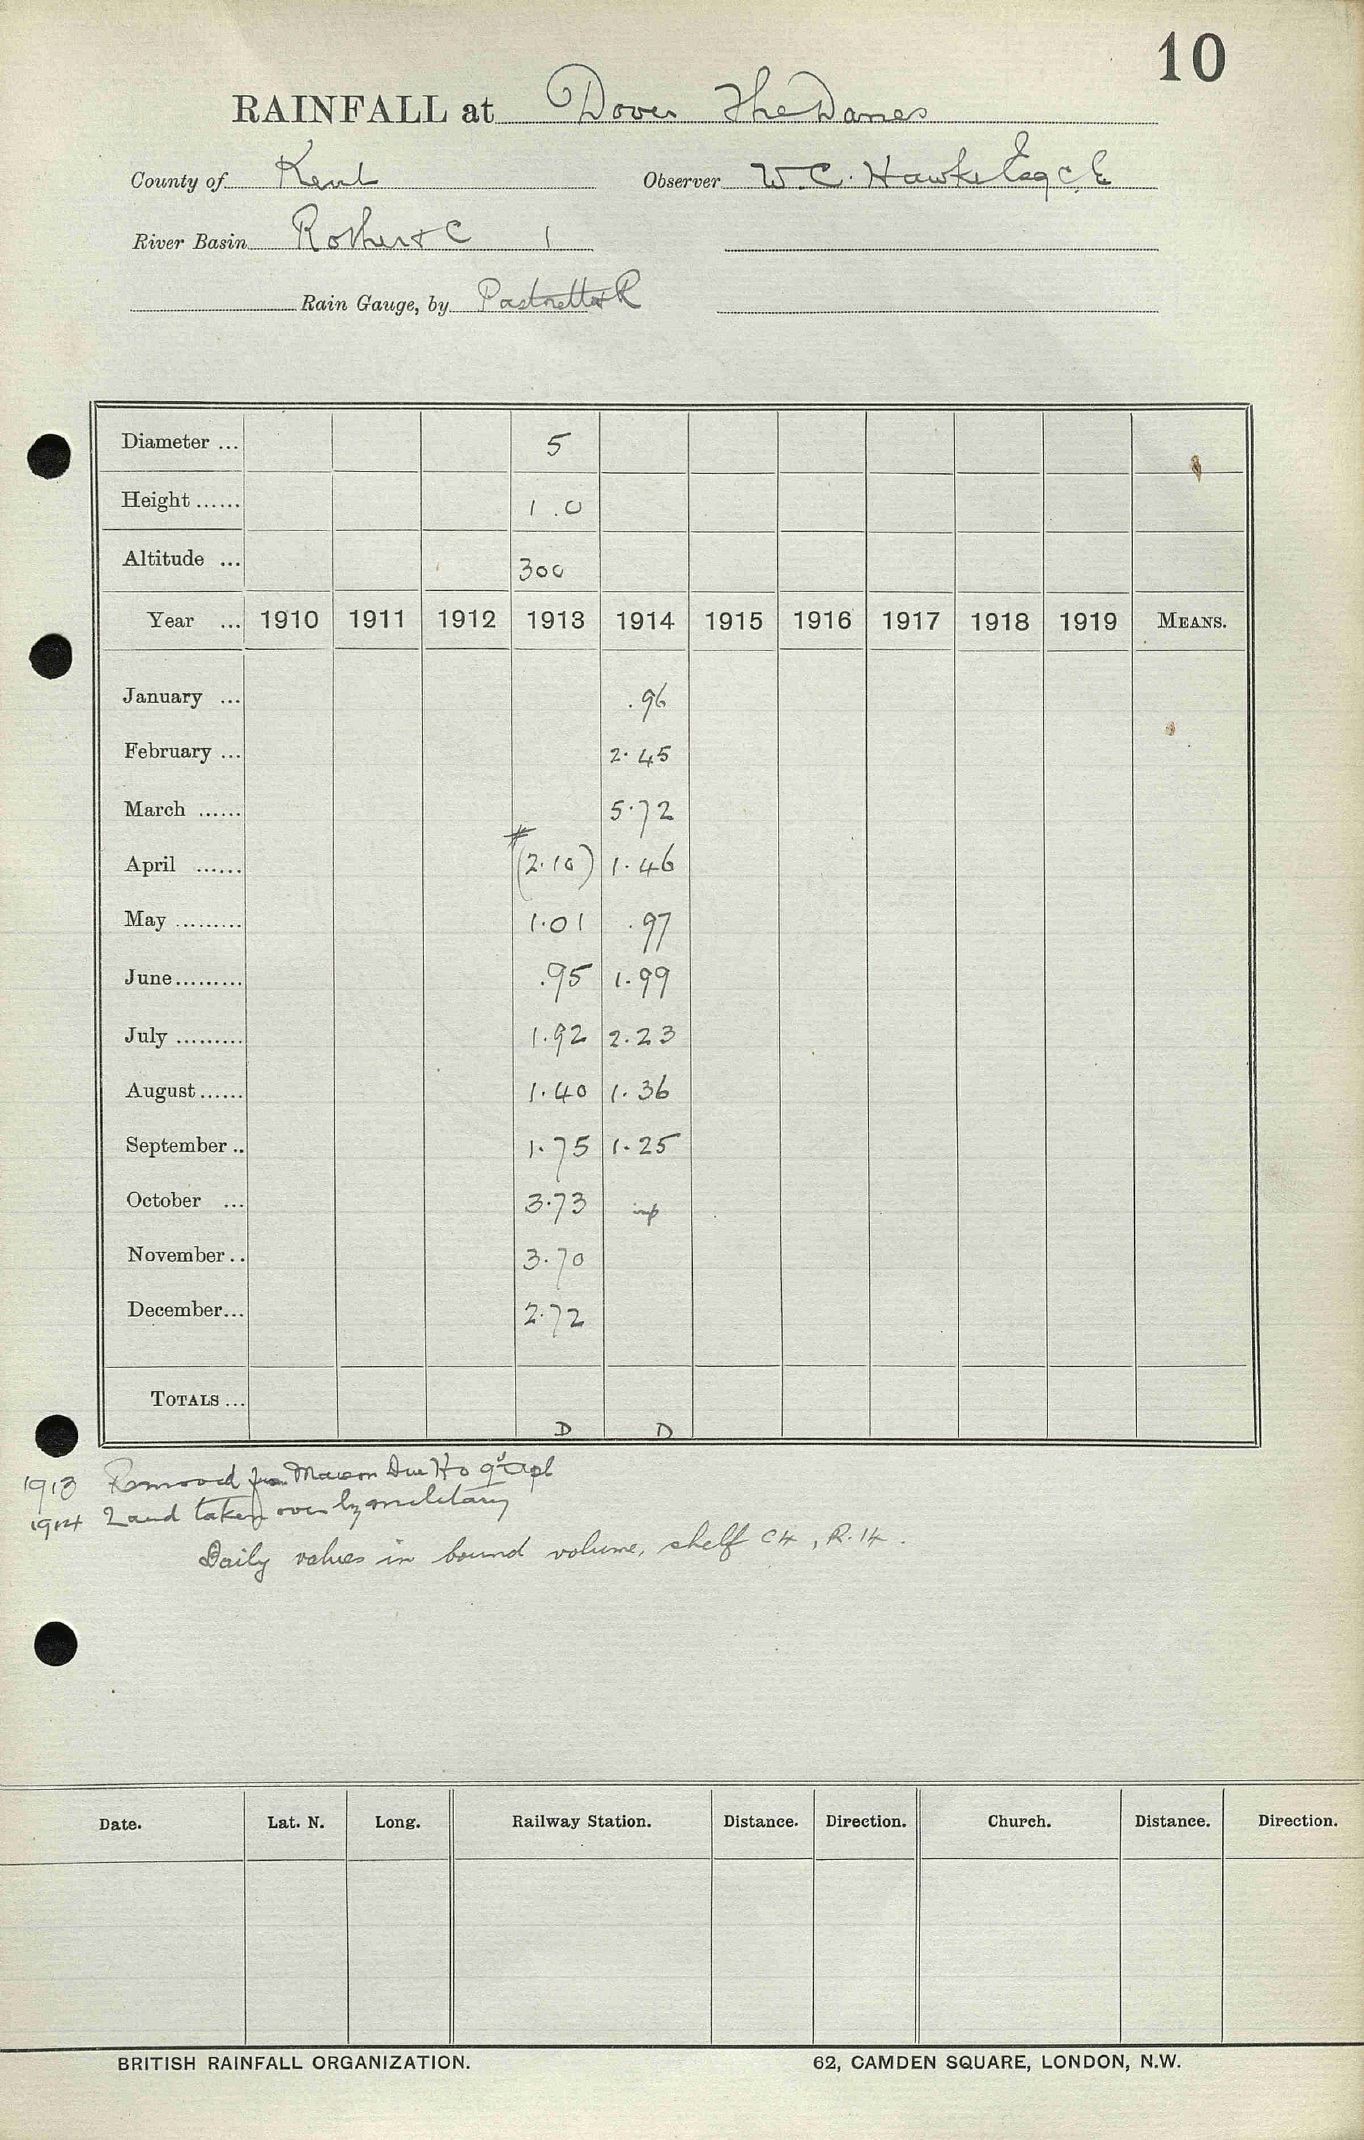 10
RAINFALL at Dover The Danes
County of Kent Observer W. C. Hawke Esq C.E
River Basin Rother & C 1
Rain Gauge, by Pastorelli & R
Diameter ... 5
Height ...... 1.0
Altitude ... 300
Year ... 1910 1911 1912 1913 1914 1915 1916 1917 1918 1919 MEANS.
January ... .96
February ... 2.45
March ...... 5.72
#
April ...... (2.10) 1.46
May ......... 1.01 .97
June ......... .95 1.99
July ......... 1.92 2.23
August ...... 1.40 1.36
September .. 1.75 1.25
October ... 3.73 imp
November .. 3.70
December ... 2.72
TOTALS ...
D D
1913 Removed from Maison Dieu Ho 9th Apl
1914 Land taken over by military
Daily values in bound volume, shelf C4, R.14.
Date. Lat. N. Long. Railway Station. Distance. Direction. Church. Distance. Direction.
BRITISH RAINFALL ORGANIZATION. 62, CAMDEN SQUARE, LONDON, N.W.